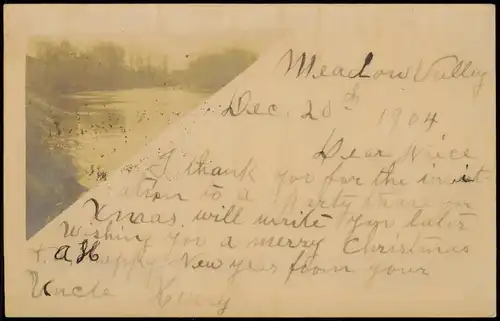 Meadow Valley
Dec. 20th 1904
Dear Neice
I thank you for the invit
ation to a Party there on
Xmas, will write you later
Wishing you a merry Christmas
+ a Happy New year from your
Uncle Henry